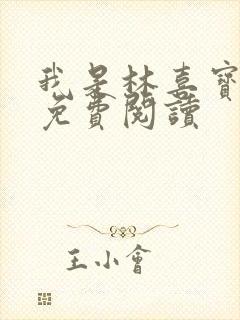 我是林喜寶
免費閱讀
王小會